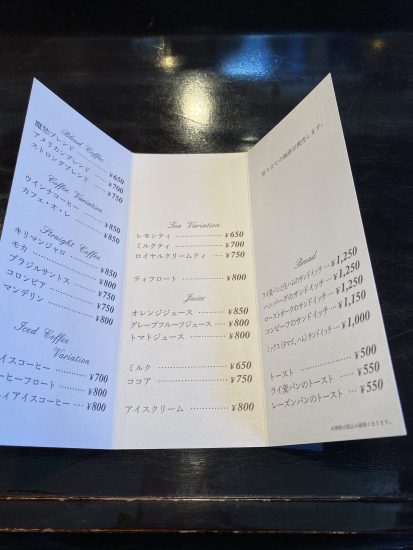 Blend Coffee
アメリカンブレンド ¥650
ストロングブレンド ¥700
¥750
Coffee Variation
ウインナコーヒー ¥850
カフェ・オ・レ ¥850
Straight Coffee
キリマンジャロ ¥850
モカ ¥800
ブラジルサントス ¥750
コロンビア ¥750
マンデリン ¥800
Iced Coffee
Variation
イスコーヒー ¥700
ーヒーフロート ¥800
ィアイスコーヒー ¥800
Tea Variation
レモンティ ¥650
ミルクティ ¥700
ロイヤルクリームティ ¥750
ティフロート ¥800
Juice
オレンジジュース ¥850
グレープフルーツジュース ¥800
トマトジュース ¥800
ミルク ¥650
ココア ¥750
アイスクリーム ¥800
Bread
ライ麦パンと生ハムのサンドイッチ ¥1,250
ハンバーグのサンドイッチ ¥1,250
ローストポークのサンドイッチ ¥1,250
コンビーフのサンドイッチ ¥1,150
ミックス(タマゴ,ハム)サンドイッチ ¥1,000
トースト ¥500
ライ麦パンのトースト ¥550
レーズンパンのトースト ¥550